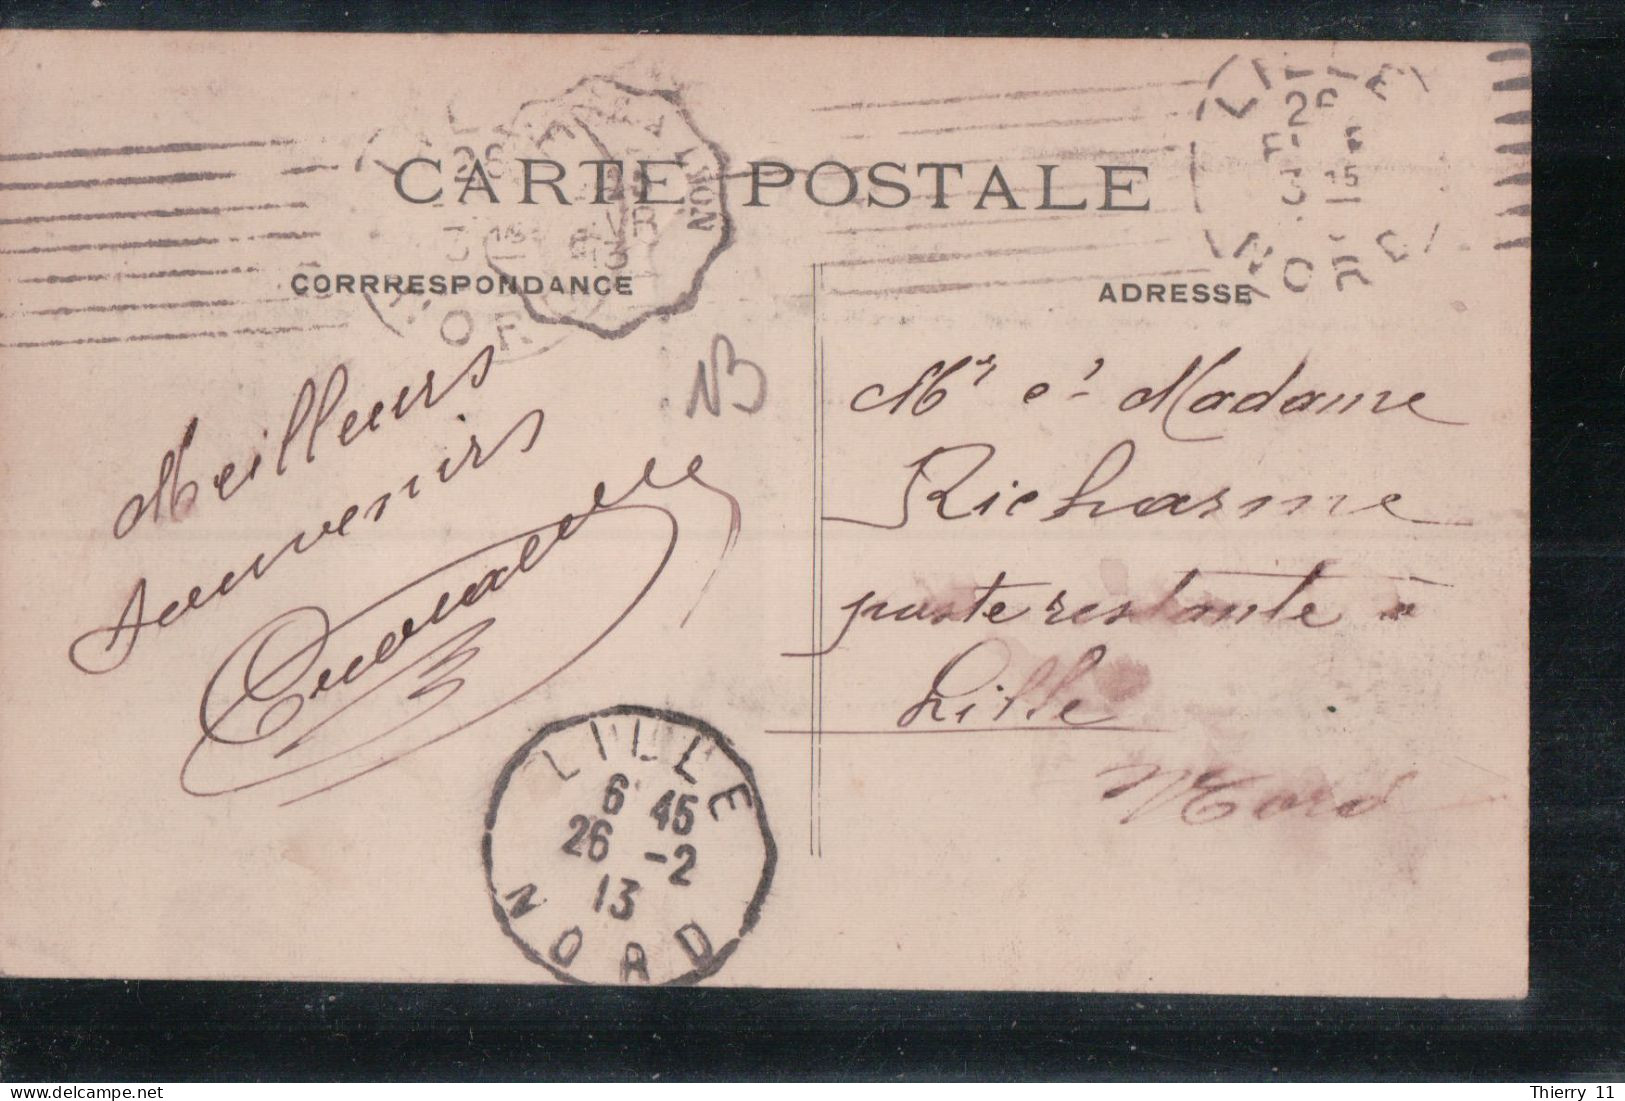 CARTE POSTALE
CORRRESPONDANCE
ADRESSE
LILLE
NORD
LYON
Meilleurs
souvenirs
NB
Mr et Madame
Richarme
poste restante à
Lille
Nord
LILLE
6 45
26 -2
13
NORD
Thierry 11